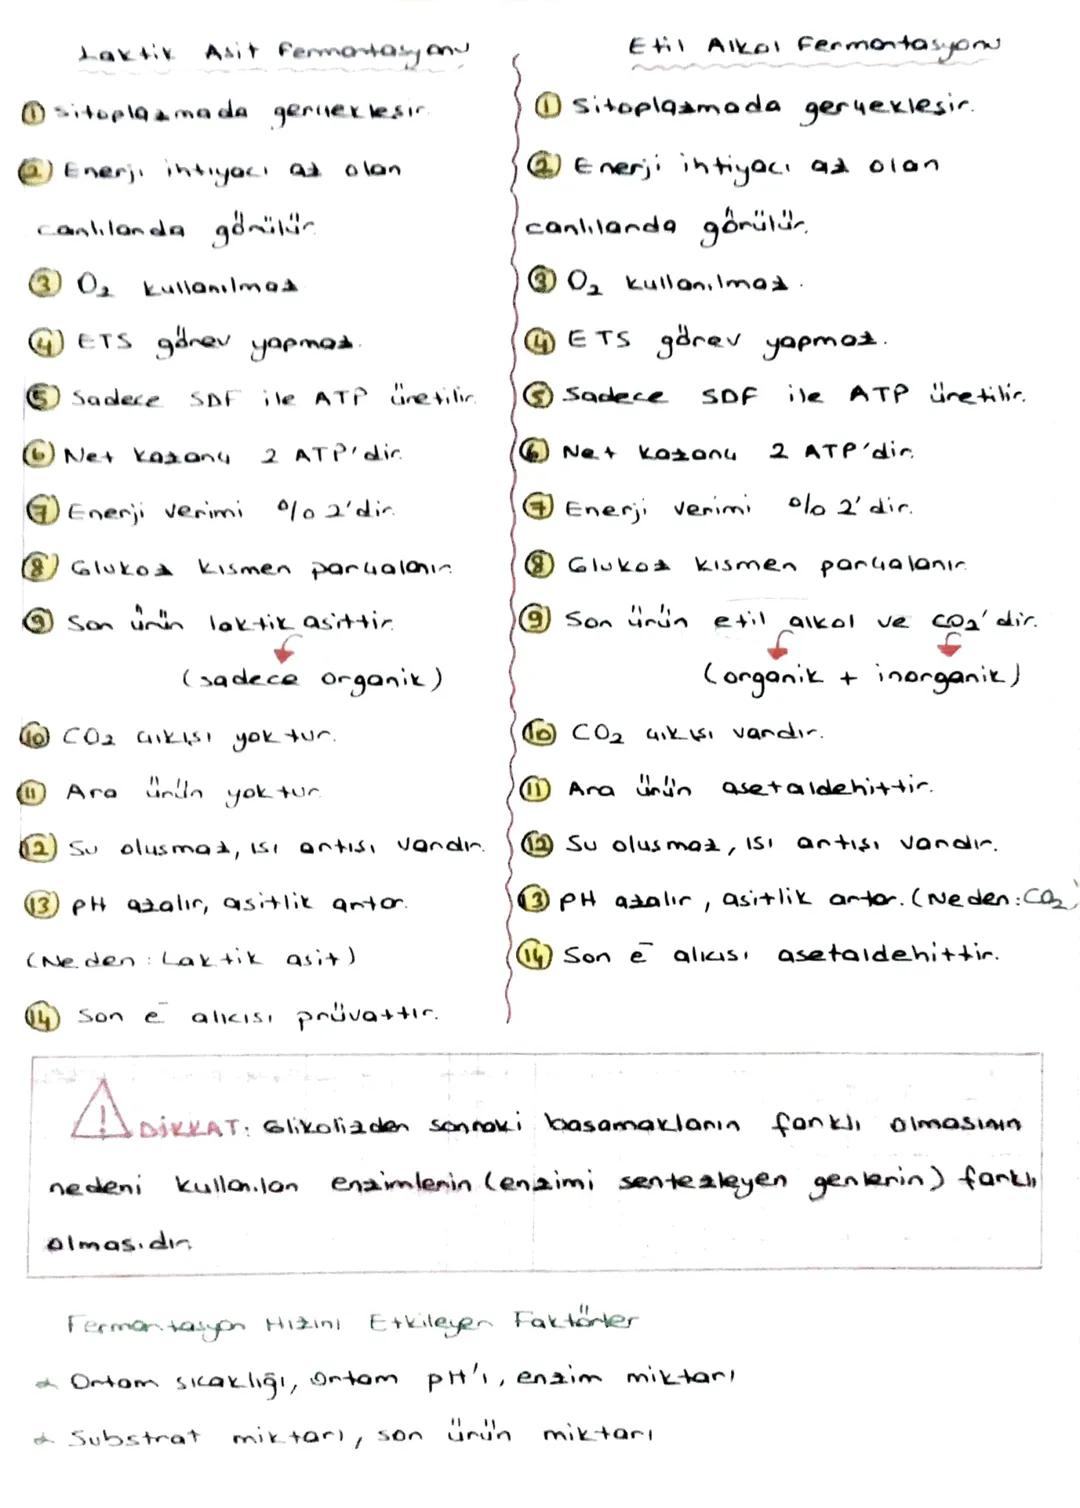 Laktik Asit Fermantasyonu
① Sitoplazmada gerçekleşir.
② Enerji ihtiyacı az olan
canlılarda görülür.
③ O₂ kullanılmaz
④ ETS görev yapmaz.
⑤ Sadece SDF ile ATP üretilir.
⑥ Net kazanç 2 ATP'dir.
⑦ Enerji verimi %2'dir.
⑧ Glukoz kısmen parçalanır.
⑨ Son ürün laktik asittir.
(sadece organik)
⑩ CO₂ çıkışı yoktur.
⑪ Ara ürün yoktur
⑫ Su oluşmaz, ısı artışı vardır.
⑬ pH azalır, asitlik artar.
(Neden: Laktik asit)
⑭ Son e⁻ alıcısı prüvattır.
Etil Alkol Fermantasyonu
① Sitoplazmada gerçekleşir.
② Enerji ihtiyacı az olan
canlılarda görülür.
③ O₂ kullanılmaz.
④ ETS görev yapmaz.
⑤ Sadece SDF ile ATP üretilir.
⑥ Net kazanç 2 ATP'dir.
⑦ Enerji verimi %2'dir.
⑧ Glukoz kısmen parçalanır
⑨ Son ürün etil alkol ve CO₂'dir.
(organik + inorganik)
⑩ CO₂ çıkışı vardır.
⑪ Ara ürün asetaldehittir.
⑫ Su oluşmaz, ısı artışı vardır.
⑬ pH azalır, asitlik artar. (Neden: CO₂)
⑭ Son e⁻ alıcısı asetaldehittir.
! DİKKAT: Glikolizden sonraki basamakların farklı olmasının
nedeni kullanılan enzimlerin (enzimi sentezleyen genlerin) farklı
olmasıdır.
Fermantasyon Hızını Etkileyen Faktörler
* Ortam sıcaklığı, ortam pH'ı, enzim miktarı
* Substrat miktarı, son ürün miktarı